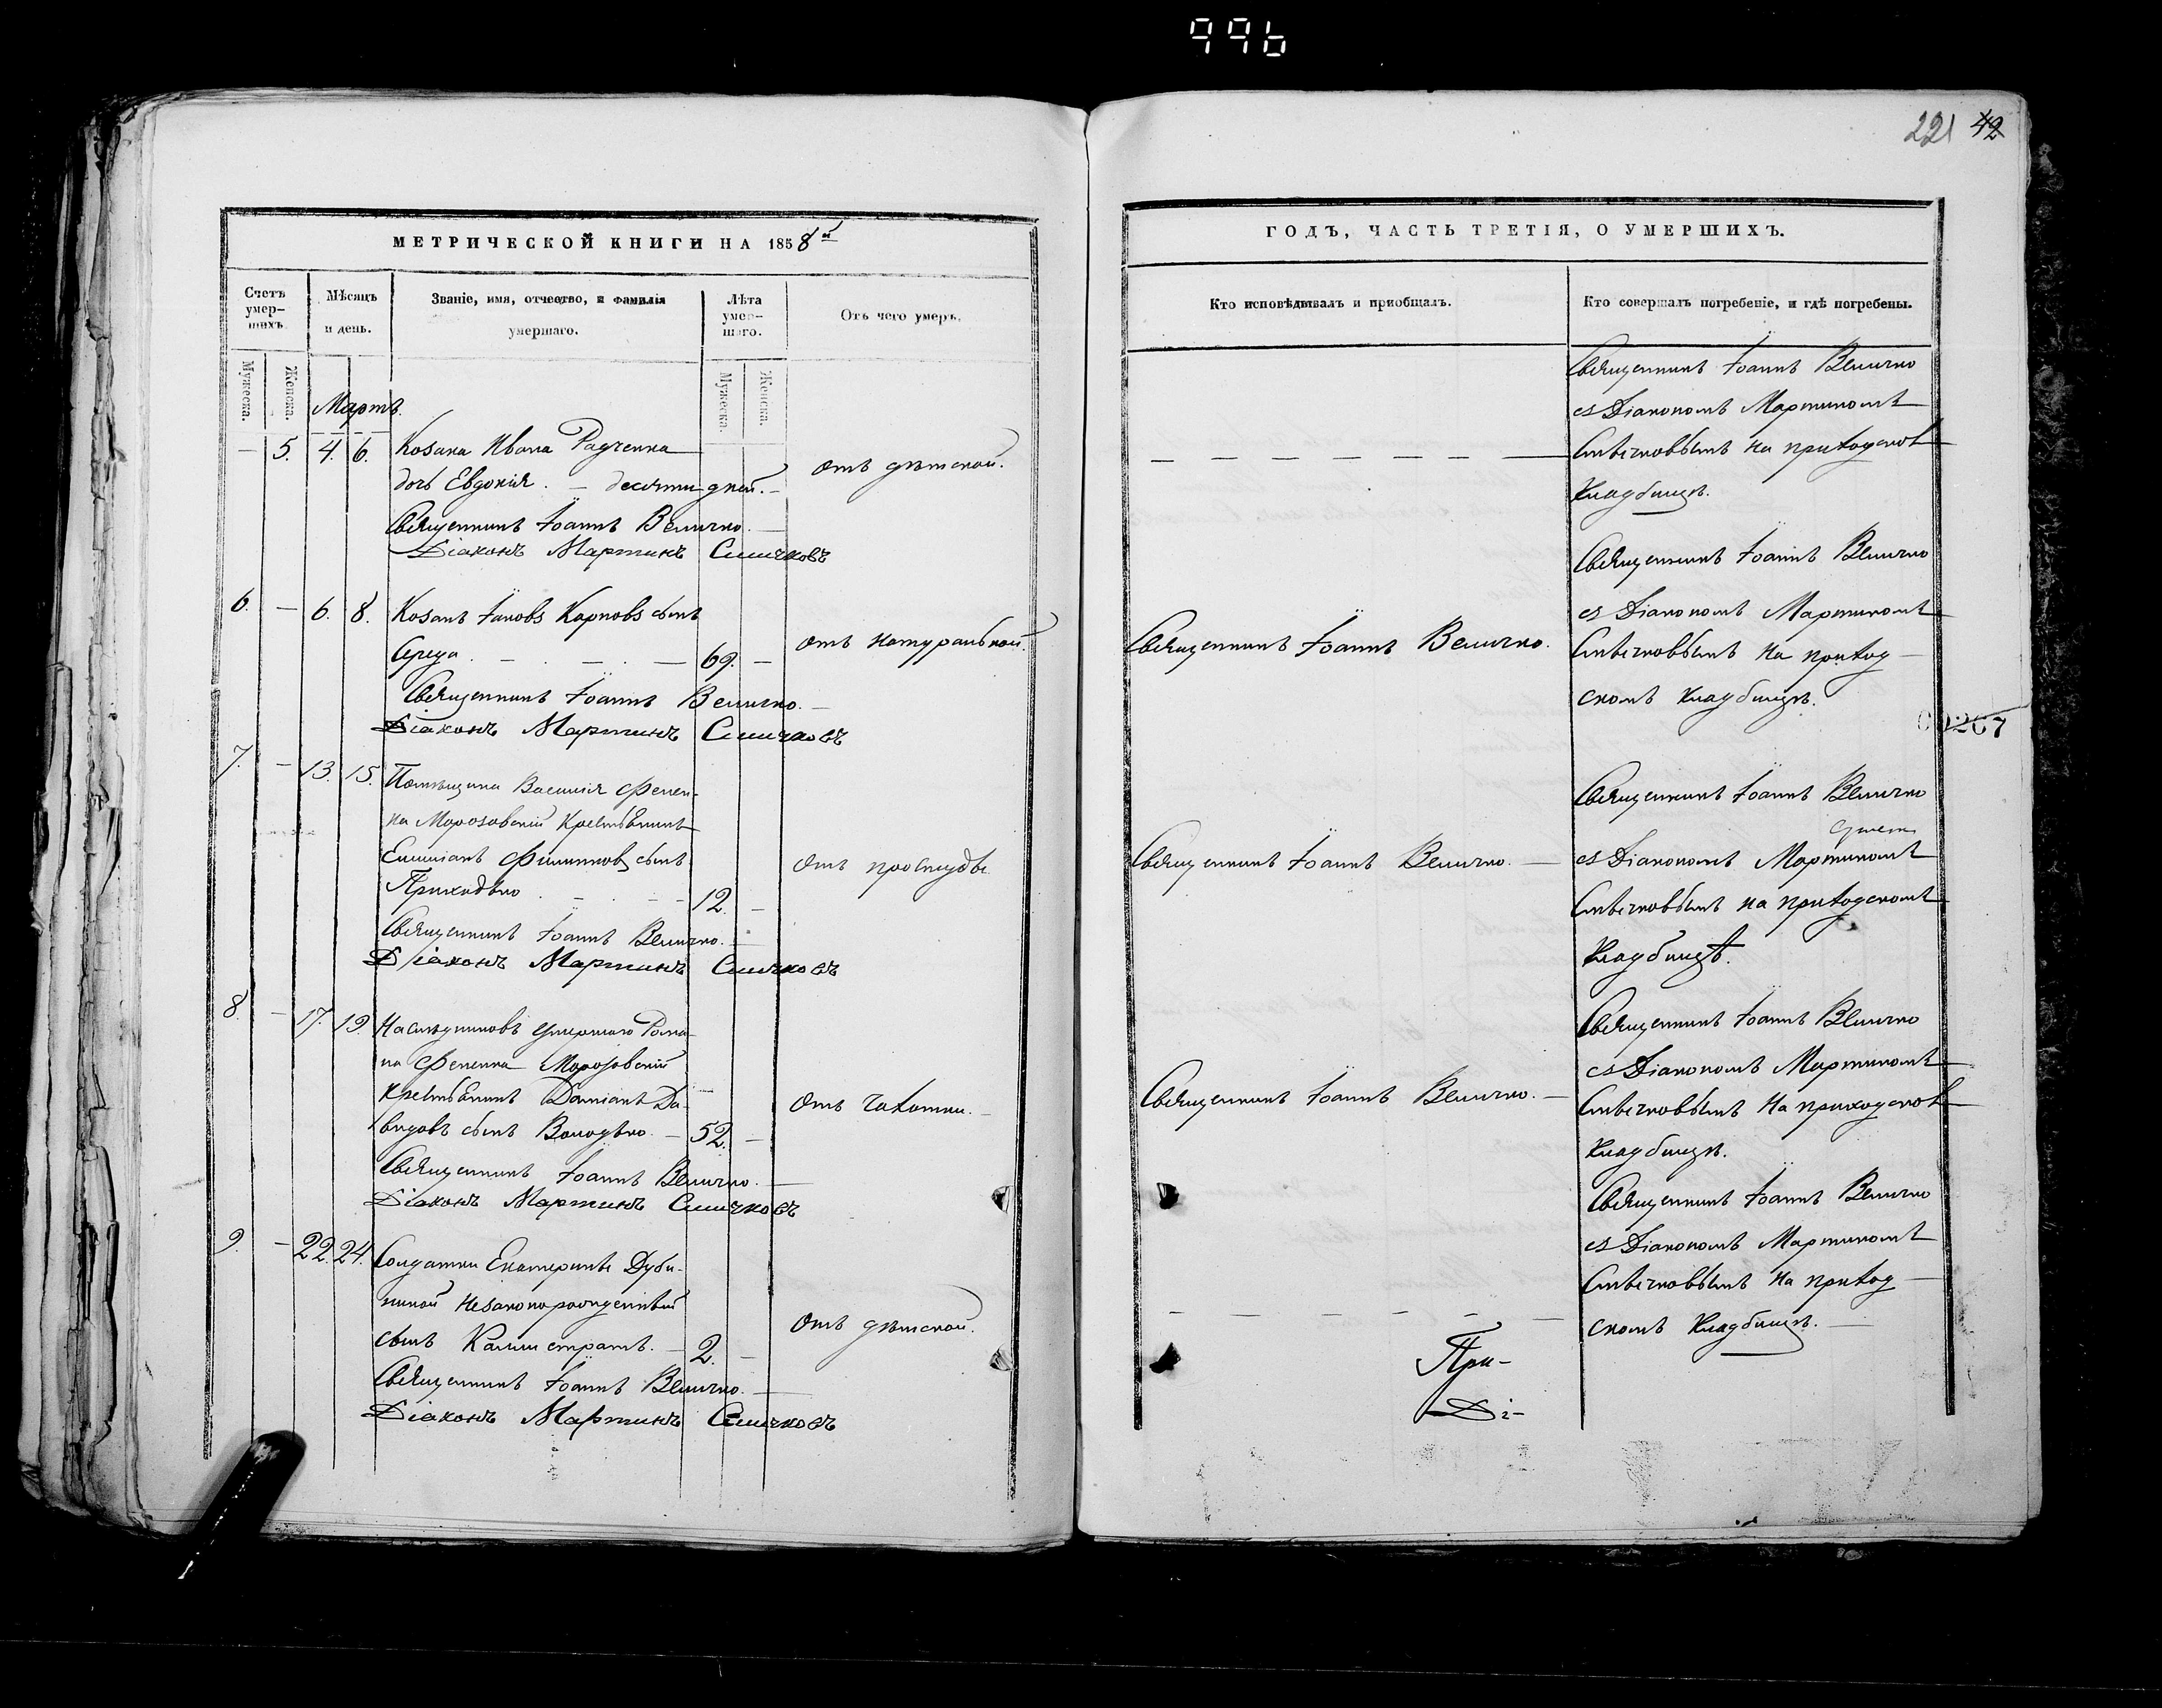 996
221 42
МЕТРИЧЕСКОЙ КНИГИ НА 1858й
Счетъ умер-
шихъ.
Мѣсяцъ
и день.
Званіе, имя, отчество, и фамилія
умершаго.
Лѣта
умер-
шаго.
Отъ чего умеръ.
Мужеска.
Женска.
Мужеска.
Женска.
Мартъ.
— 5. 4. 6. Козака Ивана Радченка
дочь Евдокія. — десяти дней. —
отъ дѣтской.
Священникъ Іоаннъ Величко.
Діаконъ Мартинъ Симчковъ
6. — 6. 8. Козакъ Іаковъ Карповъ сынъ
Середа. — 69. —
отъ натуральной.
Священникъ Іоаннъ Величко.
Діаконъ Мартинъ Симчковъ
7. — 13. 15. Помѣщика Василія Фенен-
ка Морозовскій крестьянинъ
Емиліанъ Филиповъ сынъ
Приходько 12. —
отъ простуды
Священникъ Іоаннъ Величко.
Діаконъ Мартинъ Симчковъ
8. — 17. 19. Наслѣдниковъ умершаго Рома-
на Фененка Морозовскій
крестьянинъ Даміанъ Да-
видовъ сынъ Володько. — 52. —
отъ чахотки. —
Священникъ Іоаннъ Величко.
Діаконъ Мартинъ Симчковъ
9. — 22. 24. Солдатки Екатерины Дуби-
ниной незаконорожденный
сынъ Каллистратъ. — 2. —
отъ дѣтской.
Священникъ Іоаннъ Величко.
Діаконъ Мартинъ Симчковъ
ГОДЪ, ЧАСТЬ ТРЕТІЯ, О УМЕРШИХЪ.
Кто исповѣдывалъ и пріобщалъ.
Кто совершалъ погребеніе, и гдѣ погребены.
Священникъ Іоаннъ Величко
съ Діакономъ Мартиномъ
— — — — — — —
на приходском
кладбищѣ.
Священникъ Іоаннъ Величко
съ Діакономъ Мартиномъ
Священникъ Іоаннъ Величко.
на приход-
скомъ кладбищѣ.
267
Священникъ Іоаннъ Величко
Священникъ Іоаннъ Величко. —
съ Діакономъ Мартиномъ
на приходскомъ
кладбищѣ.
Священникъ Іоаннъ Величко
съ Діакономъ Мартиномъ
Священникъ Іоаннъ Величко. —
на приходском
кладбищѣ.
Священникъ Іоаннъ Величко
съ Діакономъ Мартиномъ
на приход-
— — — — — —
скомъ кладбищѣ. —
При-
Ді-